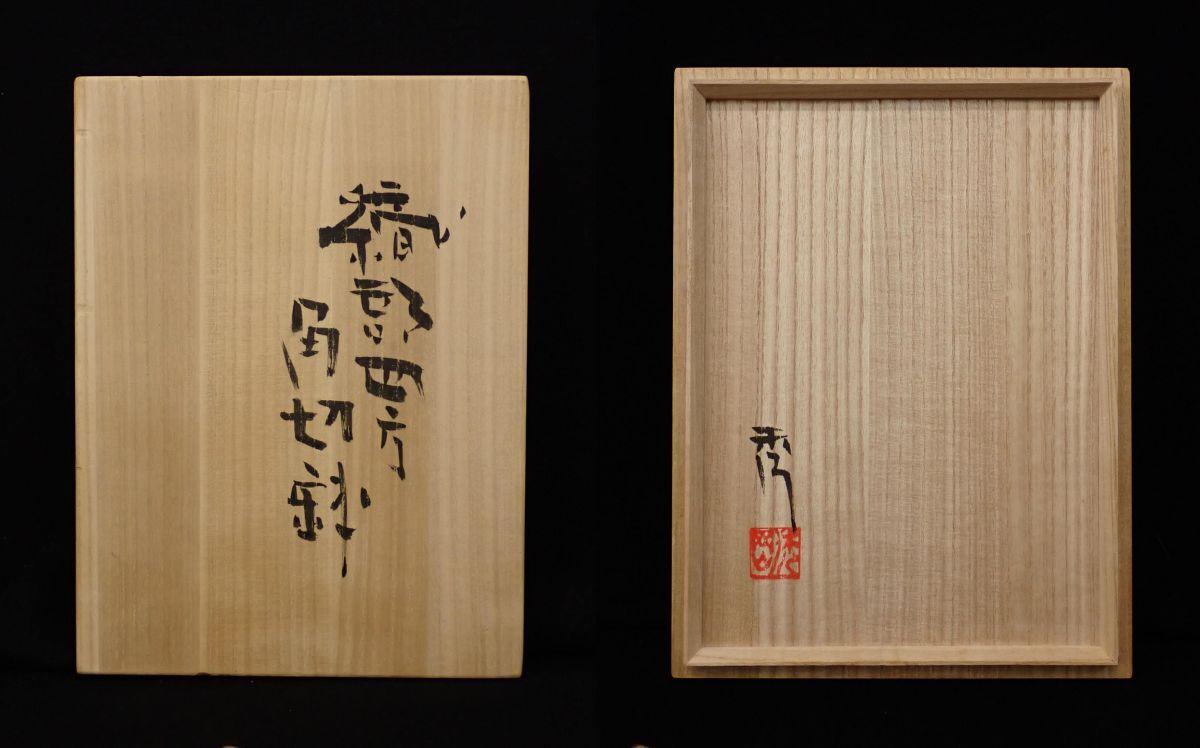 織部四方
角切鉢
秀